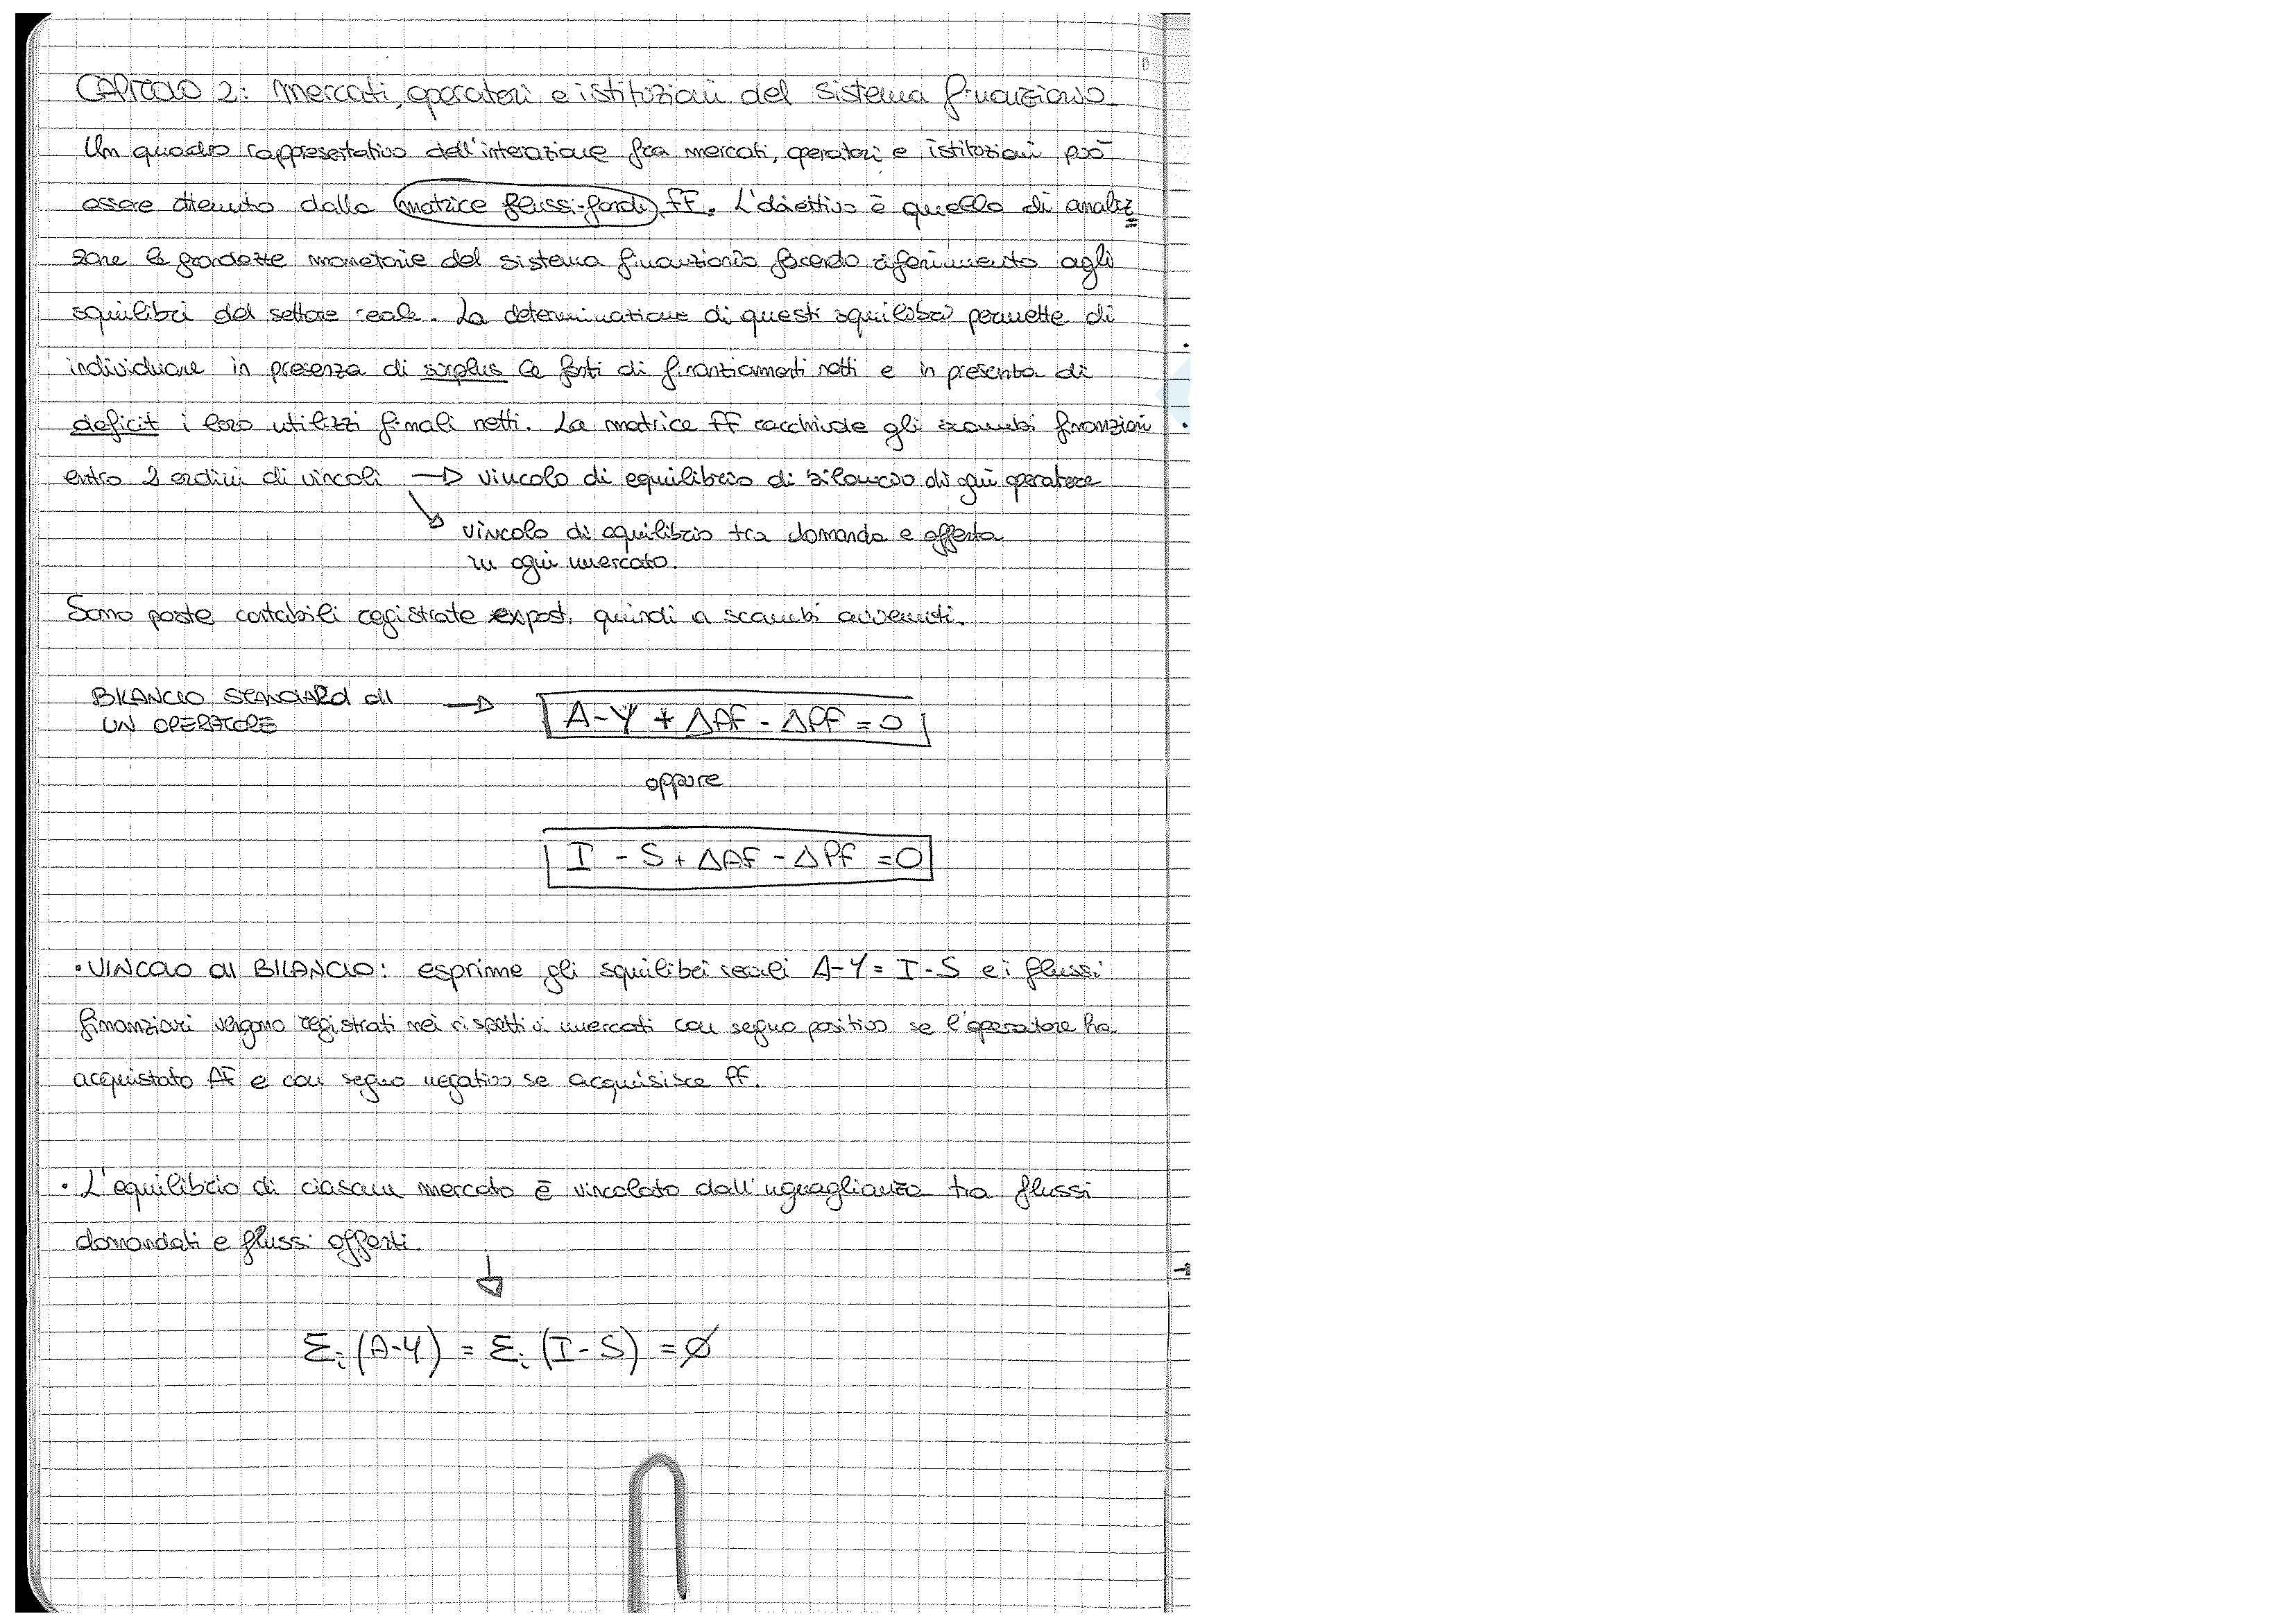 CAPITOLO 2: Mercati, operatori e istituzioni del sistema finanziario
Un quadro rappresentativo dell'interazione fra mercati, operatori e istituzioni può
essere ottenuto dalla matrice flussi-fondi FF. L'obiettivo è quello di analiz
zare le grandezze monetarie del sistema finanziario facendo riferimento agli
squilibri del settore reale. La determinazione di questi squilibri permette di
individuare in presenza di surplus le fonti di finanziamenti netti e in presenza di
deficit i loro utilizzi finali netti. La matrice FF racchiude gli scambi finanziari
entro 2 ordini di vincoli → vincolo di equilibrio di bilancio di ogni operatore
↘ vincolo di equilibrio tra domanda e offerta
in ogni mercato.
Sono poste contabili registrate expost, quindi a scambi avvenuti.
BILANCIO STANDARD di → A-Y + ΔAF - ΔPF = 0
UN OPERATORE
oppure
I - S + ΔAF - ΔPF = 0
• VINCOLO DI BILANCIO: esprime gli squilibri reali A-Y = I-S e i flussi
finanziari vengono registrati nei rispettivi mercati con segno positivo se l'operatore ha
acquistato AF e con segno negativo se acquisisce PF.
• L'equilibrio di ciascun mercato è vincolato dall'uguaglianza tra flussi
domandati e flussi offerti.
↓
Σi (A-Y) = Σi (I-S) = Ø